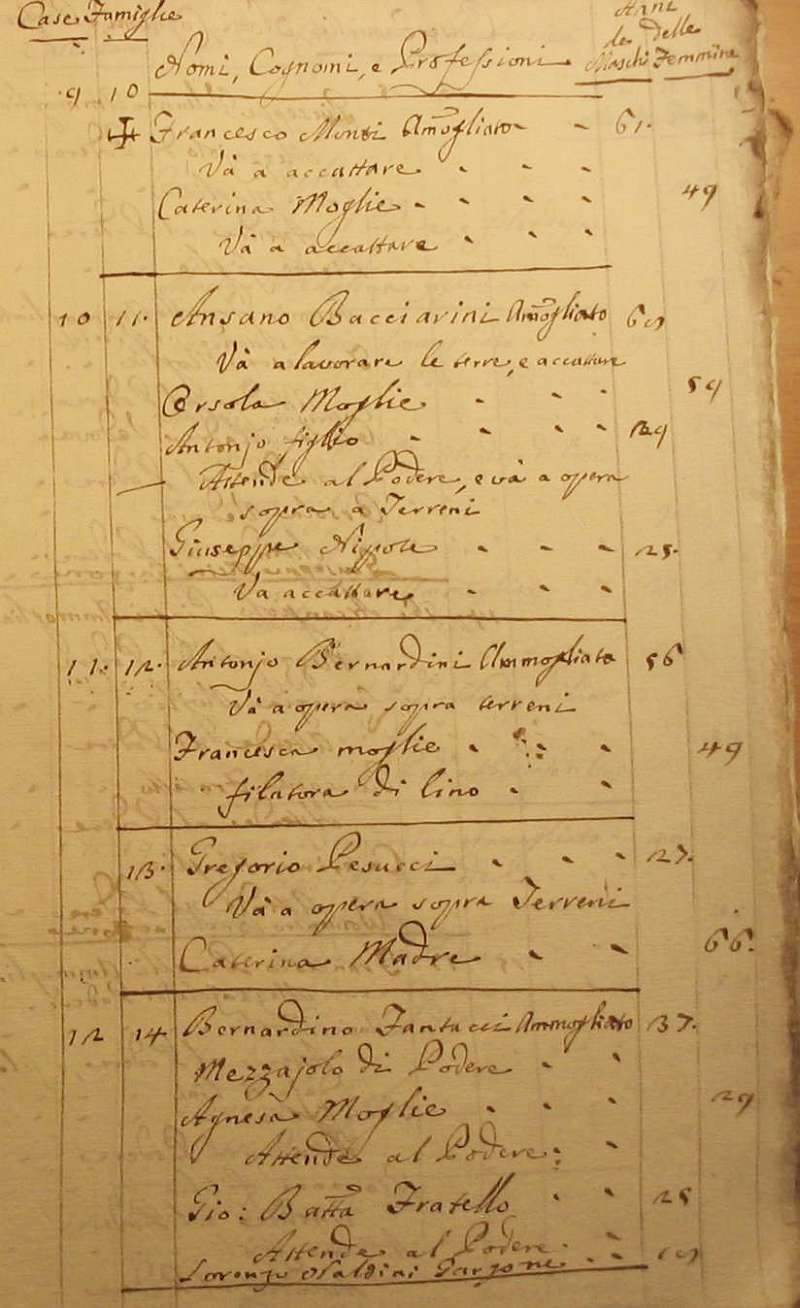 Case Famiglie
Anni
de delle
Nomi, Cognomi, e Professioni Maschi Femmine
9 10
Francesco Monti Amogliato 61.
Và a accattare
Caterina Moglie 49
Và a accattare
10 11. Ansano Bacciarini Amogliato
Và a lavorare le terre, e accattare
Orsola Moglie 59
Antonjo figlio 29
Attende al Podere, e và a opera
sopra a Terreni
Giuseppe Nipote 25.
Va accattare
11. 12. Antonjo Bernardini Ammogliato 56
Và a opera sopra terreni
Francesca moglie 49
filatora di lino
13. Gregorio Pesucci 27.
Và a opera sopra Terreni
Caterina Madre 66.
12 14 Bernardino Fantacci Ammogliato 37.
Mezzajolo di Podere
Agnesa Moglie 29
Attende al Podere:
Gio: Batta Fratello 25
Attende al Podere
Lorenzo Garzone